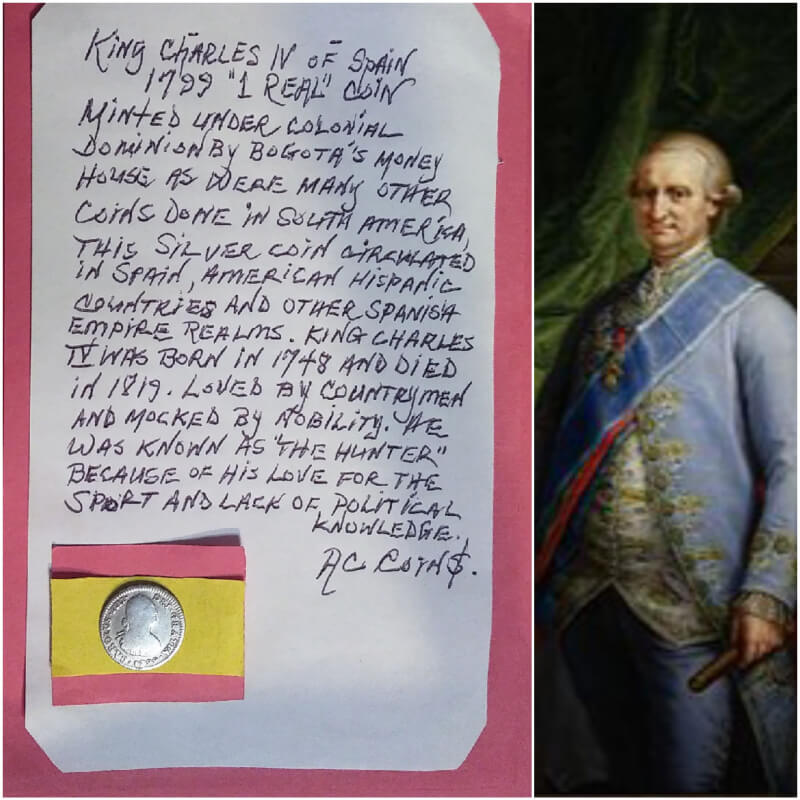 KING CHARLES IV OF SPAIN
1799 "1 REAL" COIN
MINTED UNDER COLONIAL
DOMINION BY BOGOTA'S MONEY
HOUSE AS WERE MANY OTHER
COINS DONE IN SOUTH AMERICA,
THIS SILVER COIN CIRCULATED
IN SPAIN, AMERICAN HISPANIC
COUNTRIES AND OTHER SPANISH
EMPIRE REALMS. KING CHARLES
IV WAS BORN IN 1748 AND DIED
IN 1819. LOVED BY COUNTRYMEN
AND MOCKED BY NOBILITY. HE
WAS KNOWN AS "THE HUNTER"
BECAUSE OF HIS LOVE FOR THE
SPORT AND LACK OF POLITICAL
KNOWLEDGE.
AC COIN$.